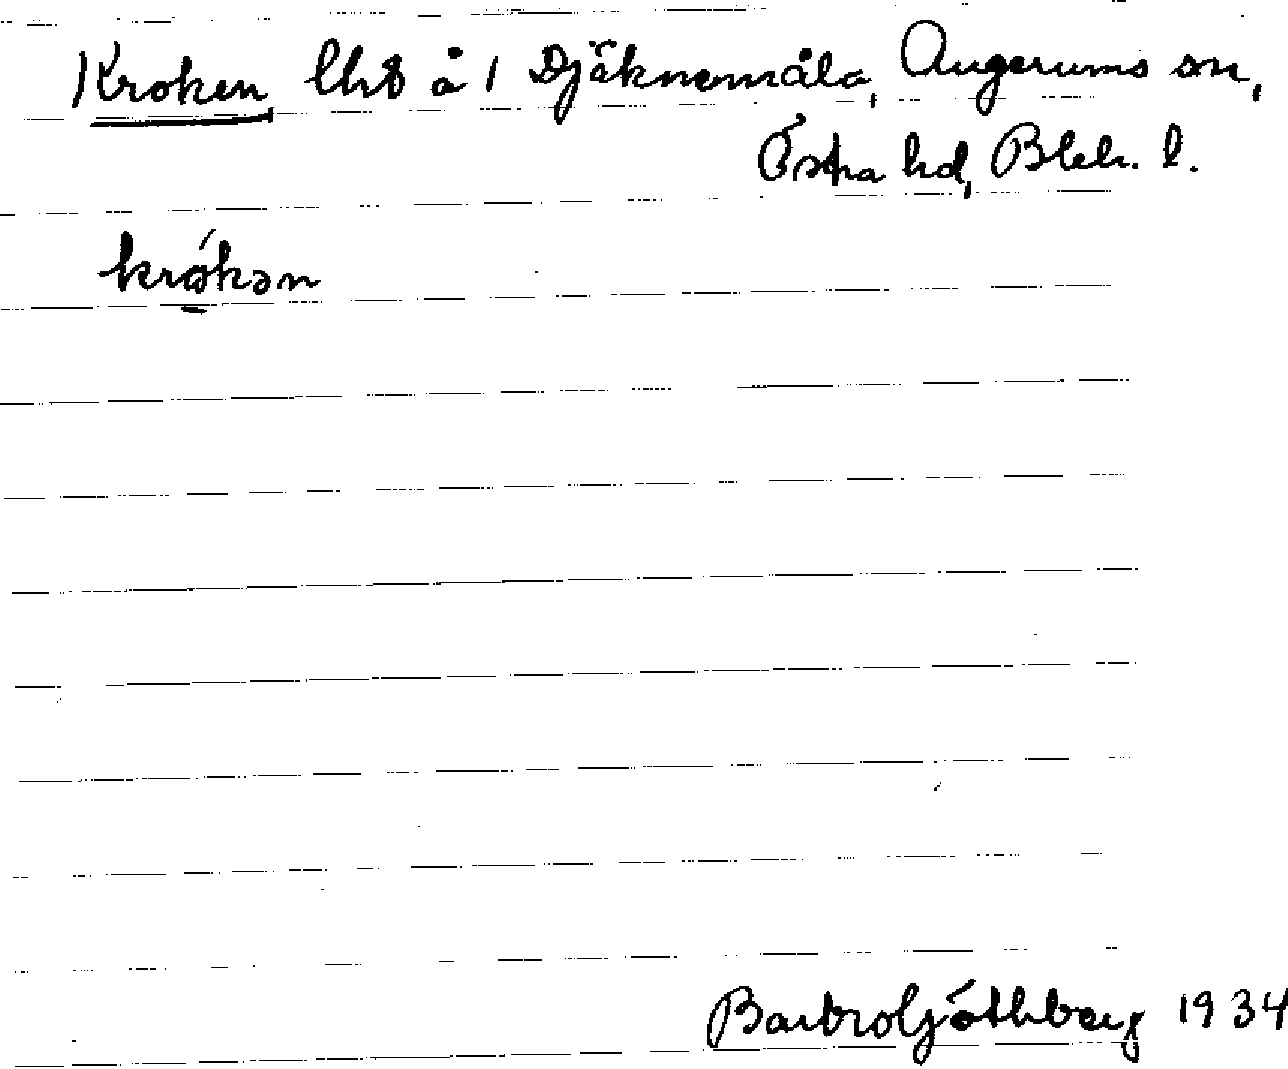 Kroken, lht å 1 Djäknemåla, Augerums sn,
Östra hd, Blek. l.
krókən
Barbro Göthberg 1934